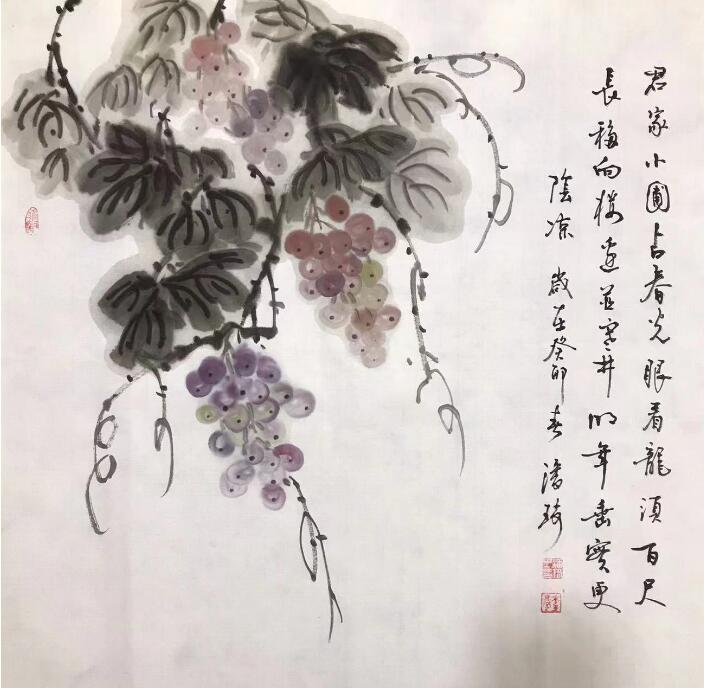 君家小圃占春光眼看龍須百尺
長移向樓邊並寒井明年垂實更
陰涼 歲在癸卯春 潘琦